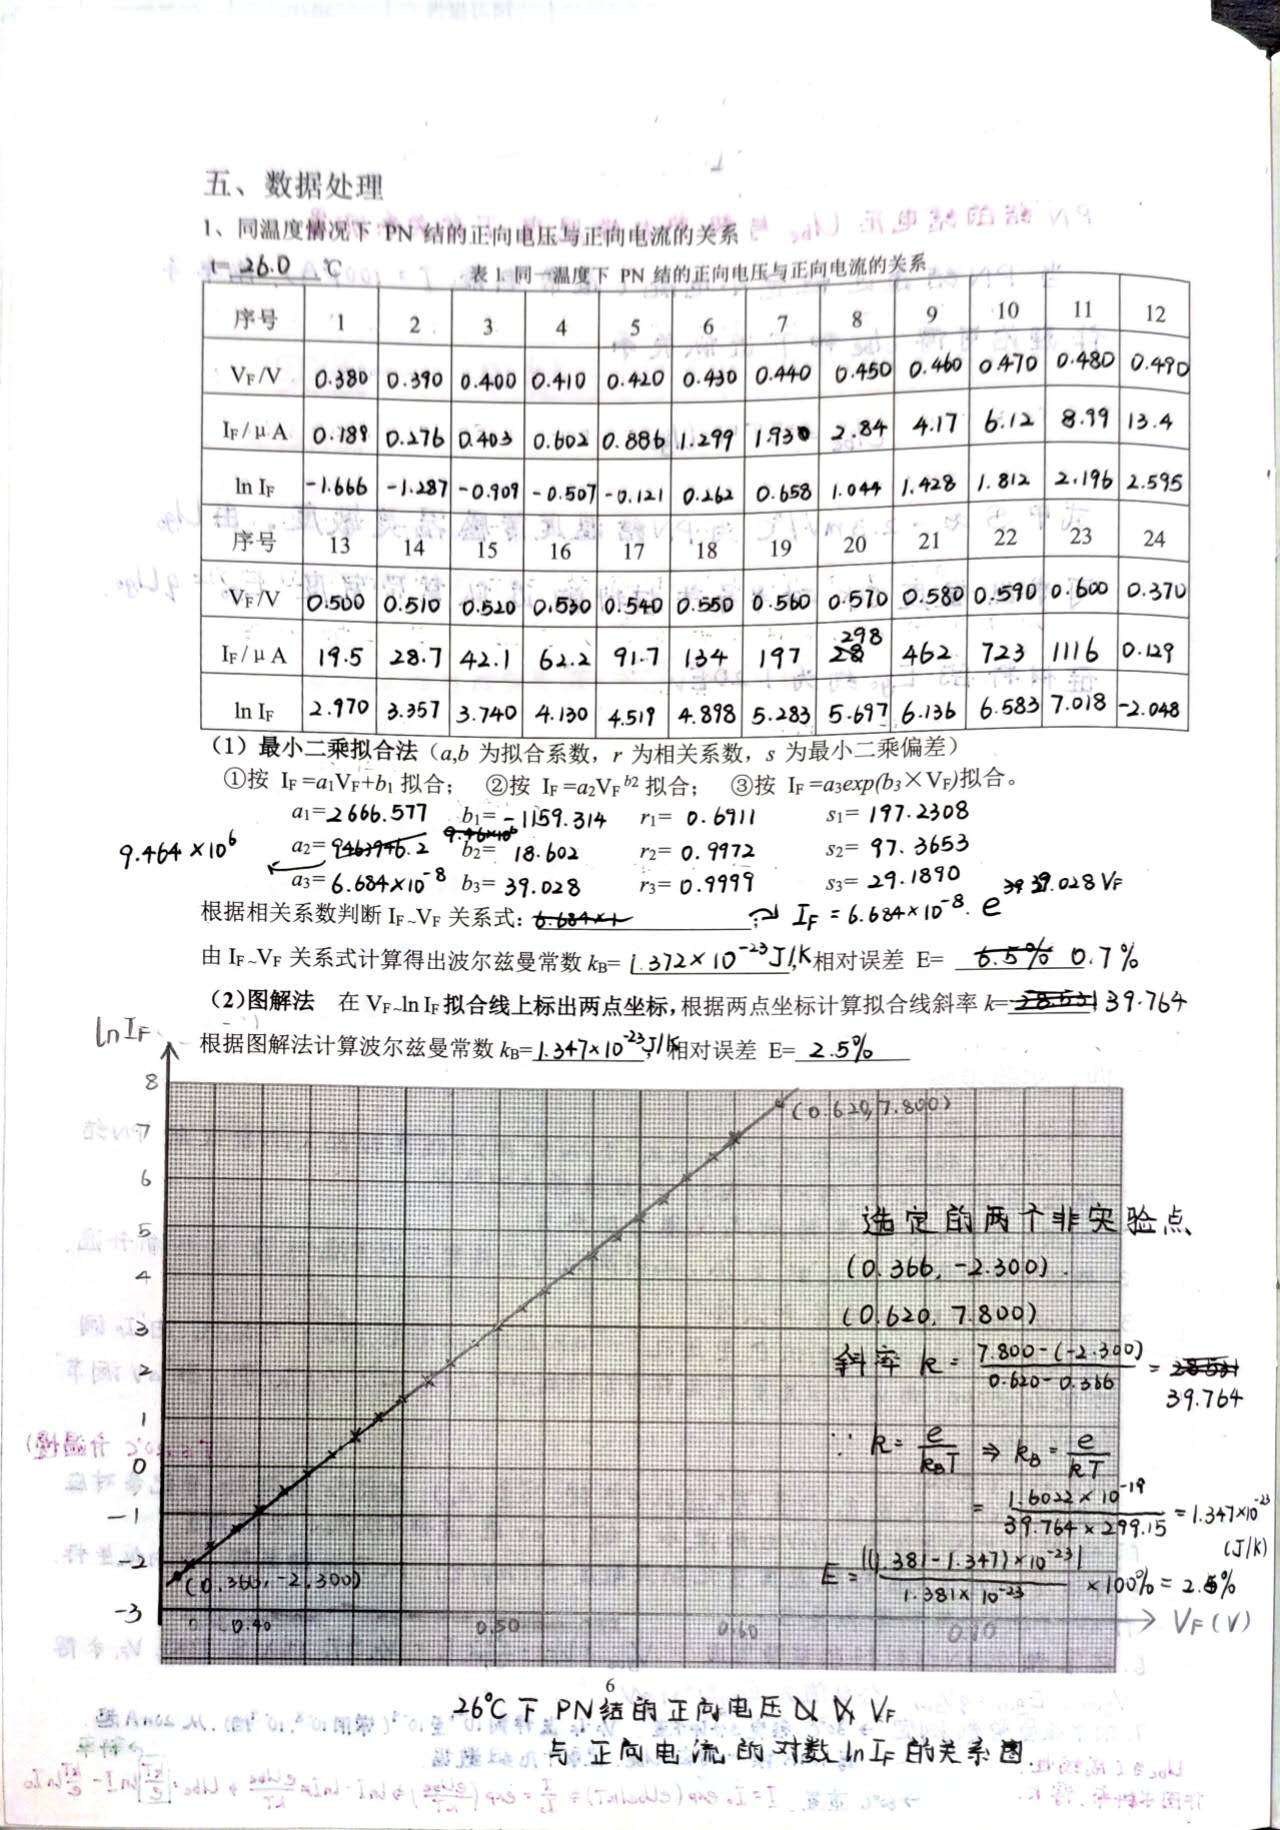 五、数据处理
1、同温度情况下 PN 结的正向电压与正向电流的关系
t= 26.0 ℃ 表 1 同一温度下 PN 结的正向电压与正向电流的关系
序号 1 2 3 4 5 6 7 8 9 10 11 12
VF/V 0.380 0.390 0.400 0.410 0.420 0.430 0.440 0.450 0.460 0.470 0.480 0.490
IF/μA 0.189 0.276 0.403 0.602 0.886 1.299 1.930 2.84 4.17 6.12 8.99 13.4
ln IF -1.666 -1.287 -0.909 -0.507 -0.121 0.262 0.658 1.044 1.428 1.812 2.196 2.595
序号 13 14 15 16 17 18 19 20 21 22 23 24
VF/V 0.500 0.510 0.520 0.530 0.540 0.550 0.560 0.570 0.580 0.590 0.600 0.370
IF/μA 19.5 28.7 42.1 62.2 91.7 134 197 298 462 723 1116 0.129
ln IF 2.970 3.357 3.740 4.130 4.519 4.898 5.283 5.697 6.136 6.583 7.018 -2.048
（1）最小二乘拟合法（a,b 为拟合系数，r 为相关系数，s 为最小二乘偏差）
①按 IF=a1VF+b1 拟合； ②按 IF=a2VF^b2 拟合； ③按 IF=a3exp(b3×VF)拟合。
a1=2666.577 b1=-1159.314 r1= 0.6911 s1= 197.2308
9.464×10^6 a2=9463946.2 b2= 18.602 r2= 0.9972 s2= 97.3653
a3=6.684×10^-8 b3= 39.028 r3= 0.9999 s3= 29.1890
根据相关系数判断 IF~VF 关系式: 6.684×1 ; IF = 6.684×10^-8 · e^39.028VF
由 IF~VF 关系式计算得出波尔兹曼常数 kB= 1.372×10^-23 J/K, 相对误差 E= 6.5% 0.7%
（2）图解法 在 VF~ln IF 拟合线上标出两点坐标，根据两点坐标计算拟合线斜率 k= 28.531 39.764
根据图解法计算波尔兹曼常数 kB=1.347×10^-23 J/K, 相对误差 E= 2.5%
ln IF
8
7
6
5
4
3
2
1
0
-1
-2
-3
(0.620, 7.800)
(0.366, -2.300)
0 0.40 0.50 0.60 0.70
VF (V)
选定的两个非实验点
(0.366, -2.300).
(0.620, 7.800)
斜率 k = 7.800-(-2.300) / 0.620-0.366 = 28.531
39.764
∵ k= e/kBT ⇒ kB= e/kT
= 1.6022×10^-19 / 39.764×299.15 = 1.347×10^-23
(J/K)
E = |(1.381-1.347)×10^-23| / 1.381×10^-23 ×100% = 2.5%
6
26℃下 PN结的正向电压 VF
与正向电流的对数 ln IF 的关系图.